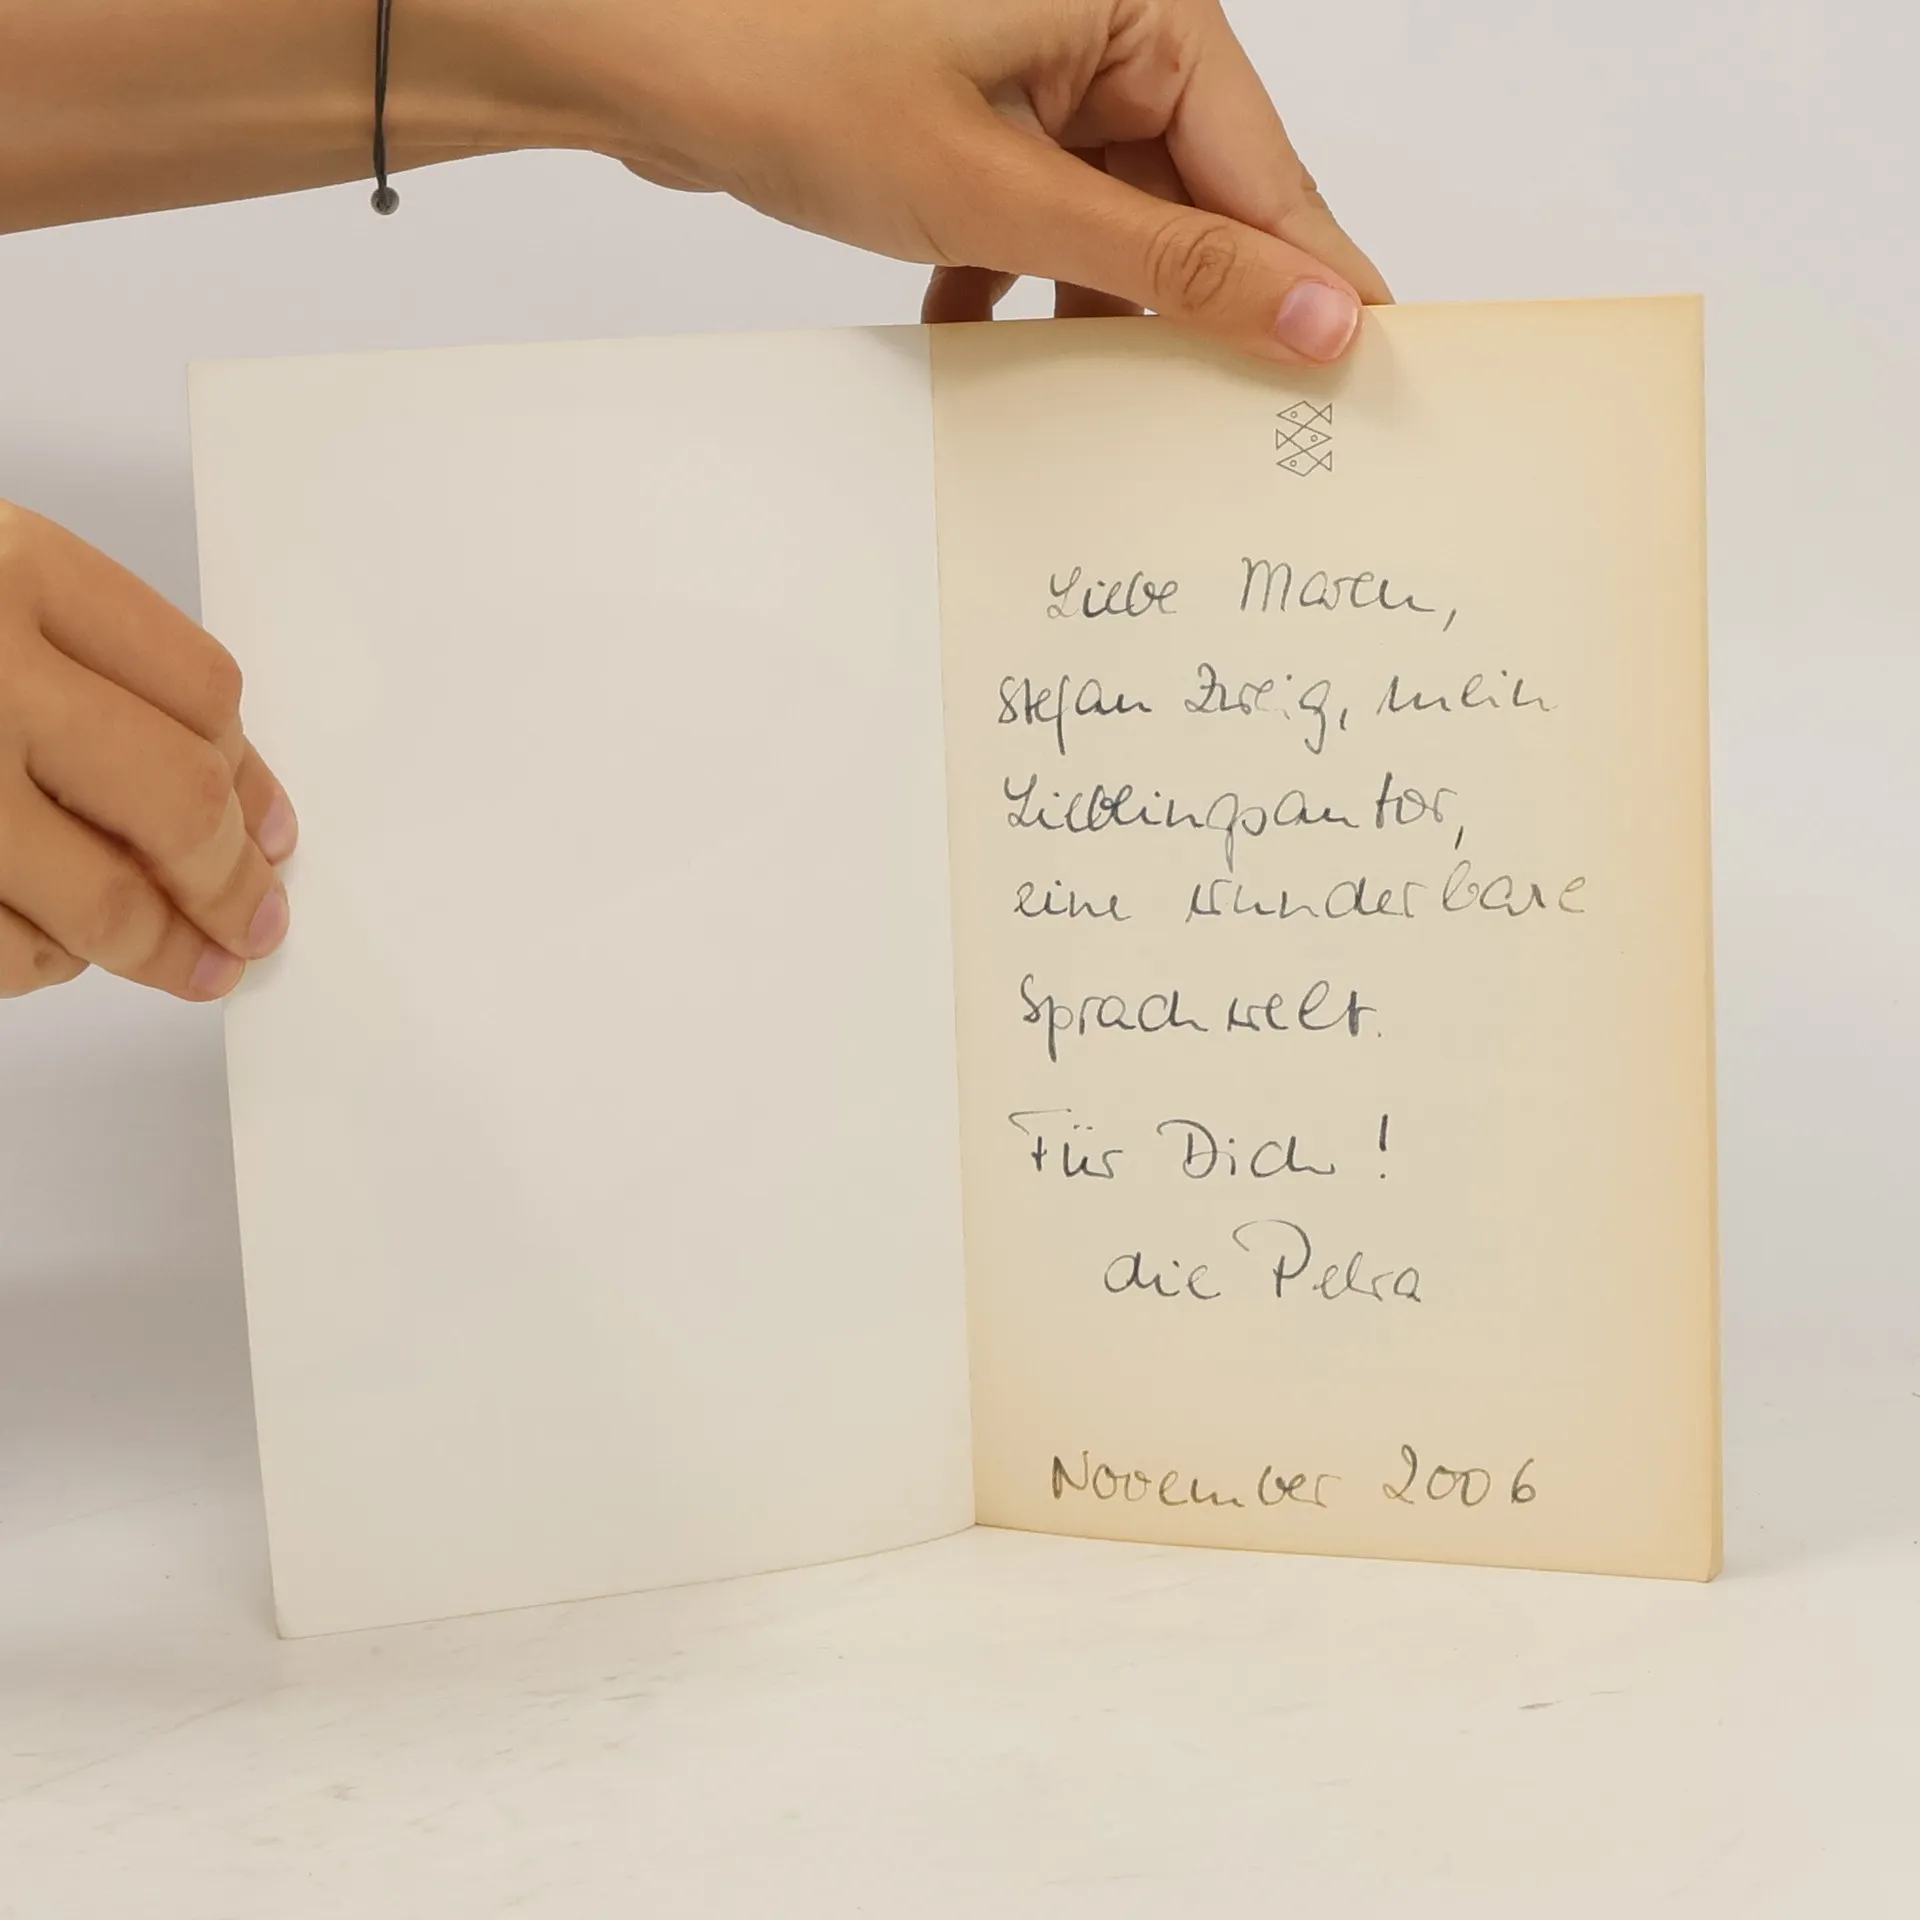 Liebe Maren,
Stefan Zweig, mein
Lieblingsautor,
eine wunderbare
Sprachwelt.
Für Dich!
die Petra
November 2006